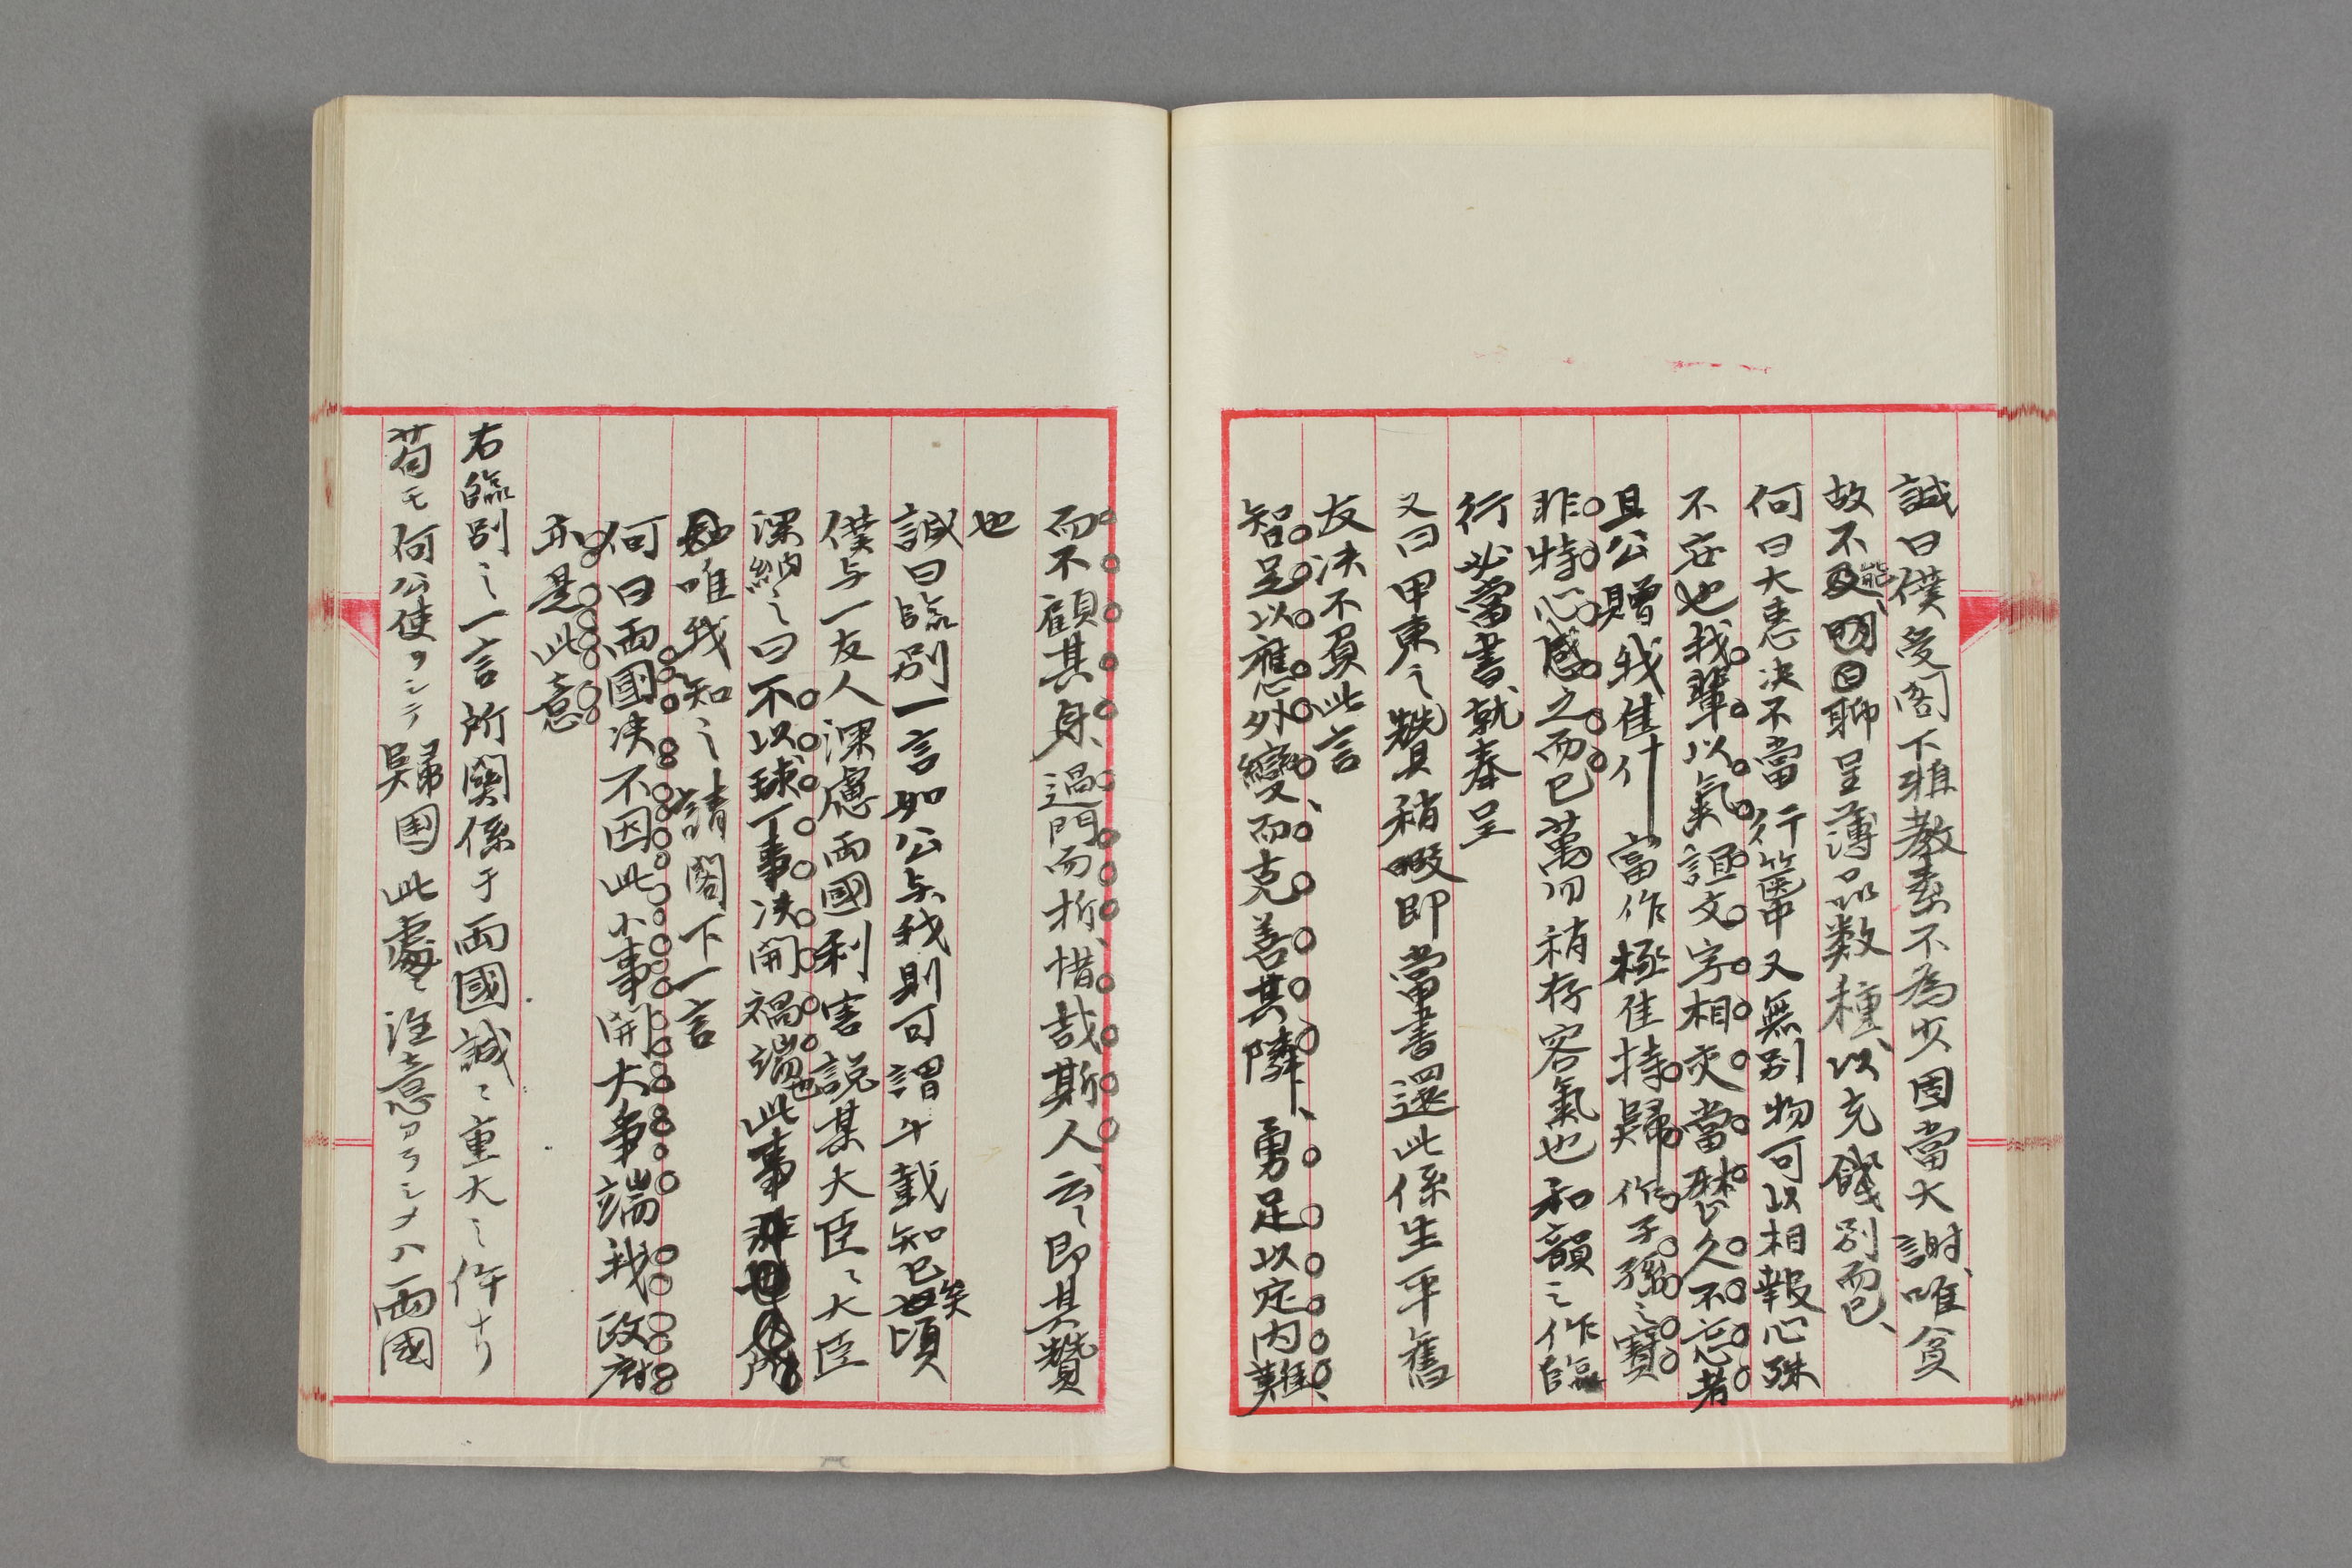 誠曰僕受閣下雅教素不為少固當大謝唯貪
故不能聊呈薄品数種以充餞別而已
何曰大惠决不當行篋中又無別物可以相報心殊
不安也我輩以氣誼文字相交當歷久不忘者
且公贈我佳什富作極佳持歸作子孫之寶
非特心感之而已萬仞稍存容氣也和韻之作臨
行必當書就奉呈
又曰甲東之贊稍暇即當書還此係生平舊
友决不負此言
智足以應外變而克善其隣勇足以定内難
而不顧其身過門而折惜哉斯人云々即其贊
也
誠曰臨別一言如公与我則可謂半載知已矣頃
僕与一友人深慮兩國利害説某大臣々大臣
深納之曰不以球一事决開禍端也此事
唯我知之請閣下一言
何曰兩國决不因此小事開大争端我政府
亦是此意
右臨別之一言所関係于兩國誠ニ重大之件ナリ
苟モ何公使ヲシテ歸国此處ニ注意アラシメハ兩國